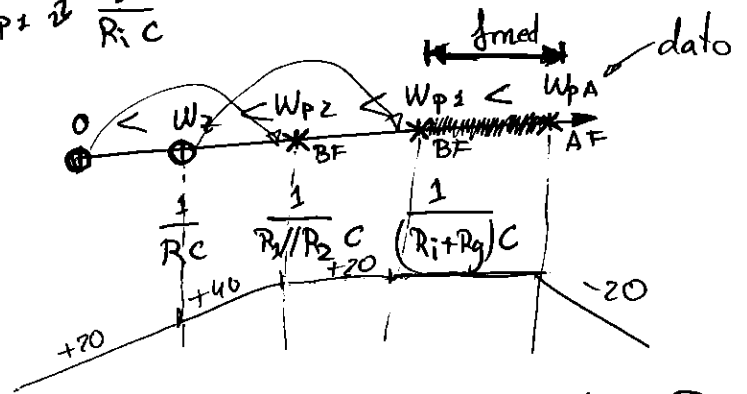 WP1 ≷ 1/(Ri C)
fmed
dato
0 < Wz < Wp2 < Wp1 < WpA
BF BF AF
1/(R C) 1/(R1//R2 C) 1/((Ri+Rg)C)
+20 +40 +20 -20